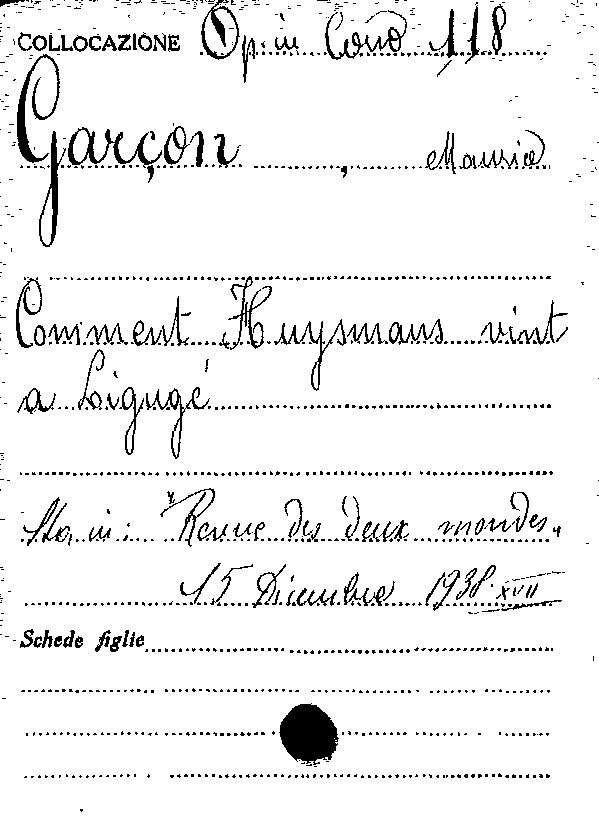 COLLOCAZIONE Op. in Cons 118
Garçon, Maurice
Comment Huysmans vint
a Ligugé
Sta in: "Revue des deux mondes"
15 Dicembre 1938. XVII
Schede figlie